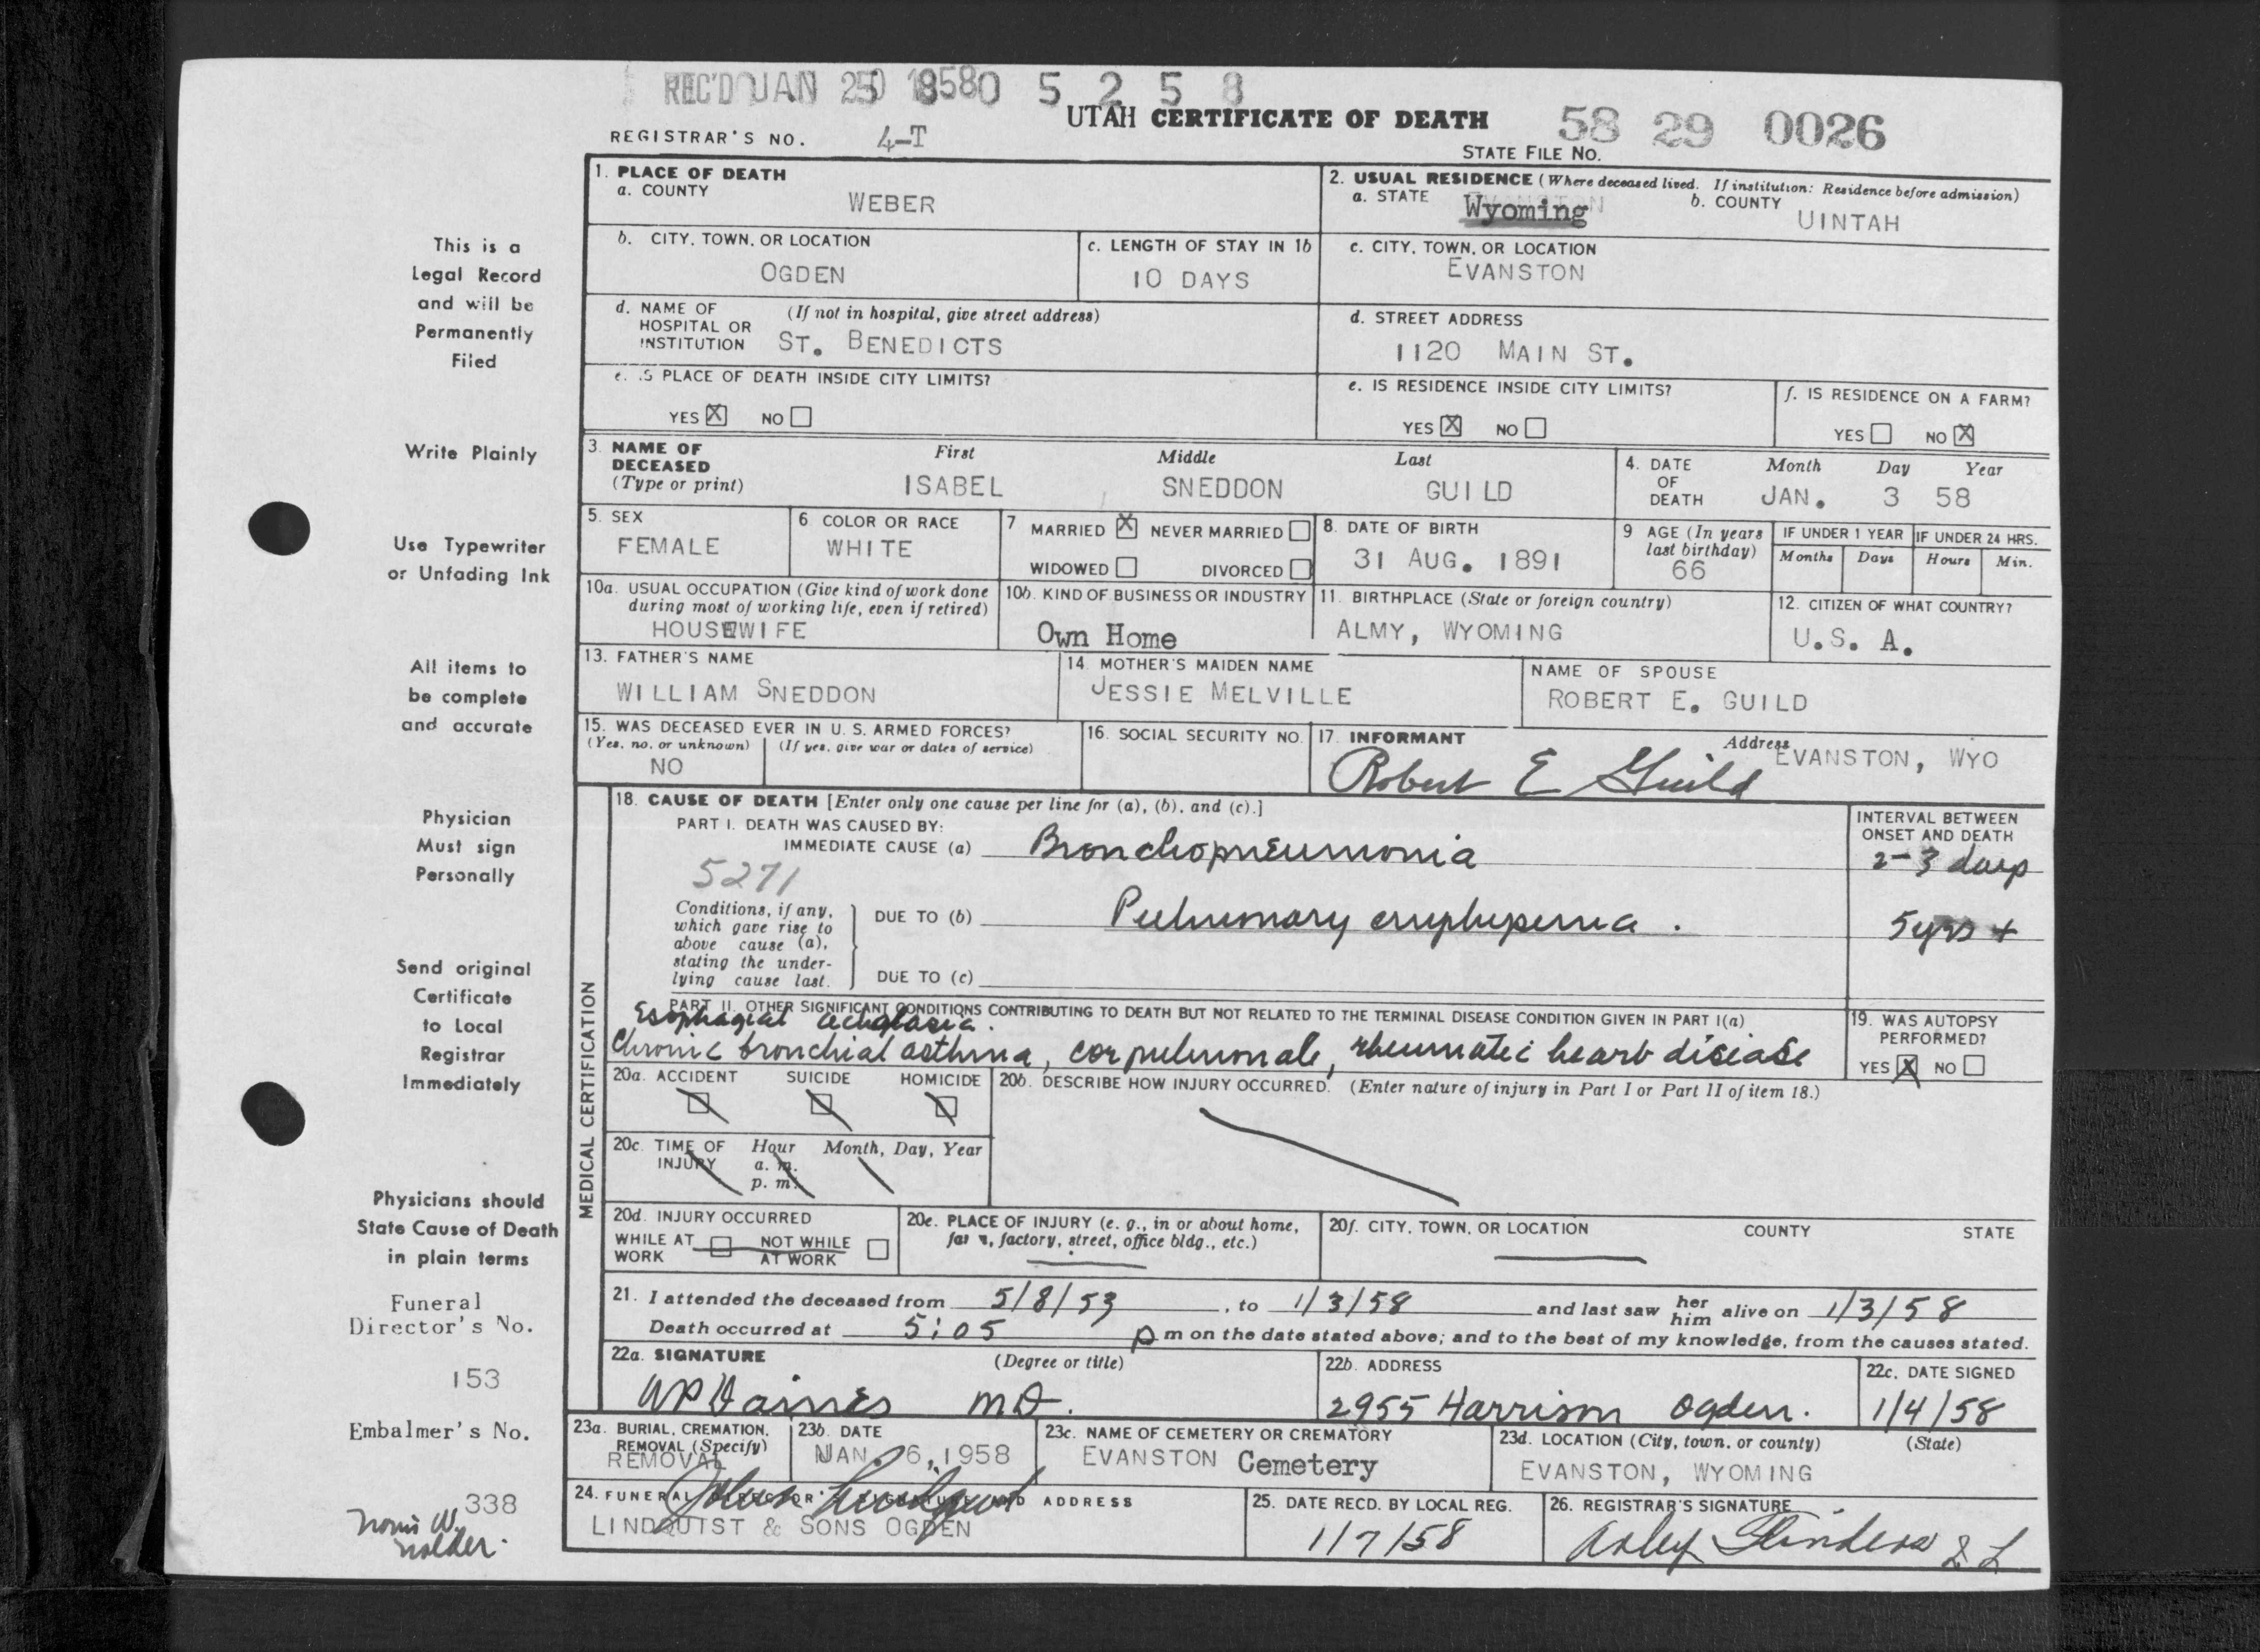 REC'D JAN 20 1958 0 5 2 5 8
UTAH CERTIFICATE OF DEATH 58 29 0026
REGISTRAR'S NO. 4-T
STATE FILE NO.
1. PLACE OF DEATH
a. COUNTY WEBER
2. USUAL RESIDENCE (Where deceased lived. If institution: Residence before admission)
a. STATE Wyoming b. COUNTY UINTAH
b. CITY, TOWN, OR LOCATION OGDEN
c. LENGTH OF STAY IN 1b 10 DAYS
c. CITY, TOWN, OR LOCATION EVANSTON
d. NAME OF HOSPITAL OR INSTITUTION (If not in hospital, give street address) ST. BENEDICTS
d. STREET ADDRESS 1120 MAIN ST.
e. IS PLACE OF DEATH INSIDE CITY LIMITS?
YES X NO
e. IS RESIDENCE INSIDE CITY LIMITS?
YES X NO
f. IS RESIDENCE ON A FARM?
YES NO X
3. NAME OF DECEASED (Type or print)
First Middle Last
ISABEL SNEDDON GUILD
4. DATE OF DEATH Month Day Year
JAN. 3 58
5. SEX FEMALE
6. COLOR OR RACE WHITE
7 MARRIED X NEVER MARRIED
WIDOWED DIVORCED
8. DATE OF BIRTH 31 AUG. 1891
9 AGE (In years last birthday) 66
IF UNDER 1 YEAR Months Days
IF UNDER 24 HRS. Hours Min.
10a. USUAL OCCUPATION (Give kind of work done during most of working life, even if retired)
HOUSEWIFE
10b. KIND OF BUSINESS OR INDUSTRY
Own Home
11. BIRTHPLACE (State or foreign country)
ALMY, WYOMING
12. CITIZEN OF WHAT COUNTRY?
U.S. A.
13. FATHER'S NAME
WILLIAM SNEDDON
14. MOTHER'S MAIDEN NAME
JESSIE MELVILLE
NAME OF SPOUSE
ROBERT E. GUILD
15. WAS DECEASED EVER IN U. S. ARMED FORCES?
(Yes, no, or unknown) (If yes, give war or dates of service)
NO
16. SOCIAL SECURITY NO.
17. INFORMANT Address
Robert E Guild EVANSTON, WYO
MEDICAL CERTIFICATION
18. CAUSE OF DEATH [Enter only one cause per line for (a), (b), and (c).]
INTERVAL BETWEEN ONSET AND DEATH
PART I. DEATH WAS CAUSED BY:
IMMEDIATE CAUSE (a) Bronchopneumonia 2-3 days
5271
Conditions, if any, which gave rise to above cause (a), stating the underlying cause last.
DUE TO (b) Pulmonary emphysema. 5 yrs +
DUE TO (c)
PART II. OTHER SIGNIFICANT CONDITIONS CONTRIBUTING TO DEATH BUT NOT RELATED TO THE TERMINAL DISEASE CONDITION GIVEN IN PART I(a)
Esophagial achalasia.
Chronic bronchial asthma, cor pulmonale, rheumatic heart disease
19. WAS AUTOPSY PERFORMED?
YES X NO
20a. ACCIDENT SUICIDE HOMICIDE
20b. DESCRIBE HOW INJURY OCCURRED. (Enter nature of injury in Part I or Part II of item 18.)
20c. TIME OF INJURY Hour Month, Day, Year
a. m.
p. m.
20d. INJURY OCCURRED
WHILE AT WORK NOT WHILE AT WORK
20e. PLACE OF INJURY (e. g., in or about home, farm, factory, street, office bldg., etc.)
20f. CITY, TOWN, OR LOCATION COUNTY STATE
21. I attended the deceased from 5/8/53, to 1/3/58 and last saw her him alive on 1/3/58
Death occurred at 5:05 p m on the date stated above; and to the best of my knowledge, from the causes stated.
22a. SIGNATURE (Degree or title)
WP Daines MD.
22b. ADDRESS
2955 Harrison Ogden.
22c. DATE SIGNED
1/4/58
23a. BURIAL, CREMATION, REMOVAL (Specify)
REMOVAL
23b. DATE
JAN. 6, 1958
23c. NAME OF CEMETERY OR CREMATORY
EVANSTON Cemetery
23d. LOCATION (City, town, or county) (State)
EVANSTON, WYOMING
24. FUNERAL DIRECTOR'S SIGNATURE AND ADDRESS
John Lindquist
LINDQUIST & SONS OGDEN
25. DATE RECD. BY LOCAL REG.
1/7/58
26. REGISTRAR'S SIGNATURE
Arley Flinders
This is a
Legal Record
and will be
Permanently
Filed
Write Plainly
Use Typewriter
or Unfading Ink
All items to
be complete
and accurate
Physician
Must sign
Personally
Send original
Certificate
to Local
Registrar
Immediately
Physicians should
State Cause of Death
in plain terms
Funeral
Director's No.
153
Embalmer's No.
338